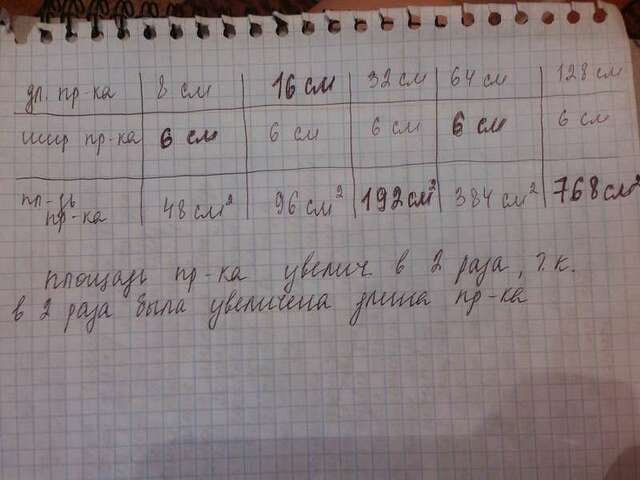 дл. пр-ка 8 см 16 см 32 см 64 см 128 см
шир пр-ка 6 см 6 см 6 см 6 см 6 см
пл-дь пр-ка 48 см² 96 см² 192 см² 384 см² 768 см²
площадь пр-ка увелич. в 2 раза, т.к.
в 2 раза была увеличена длина пр-ка